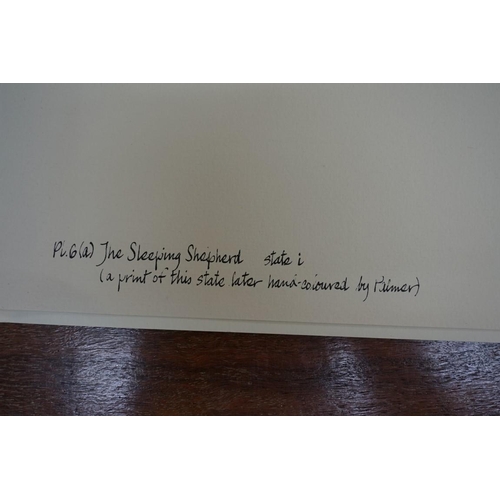 Pl.6(a) The Sleeping Shepherd state i
(a print of this state later hand-coloured by Palmer)